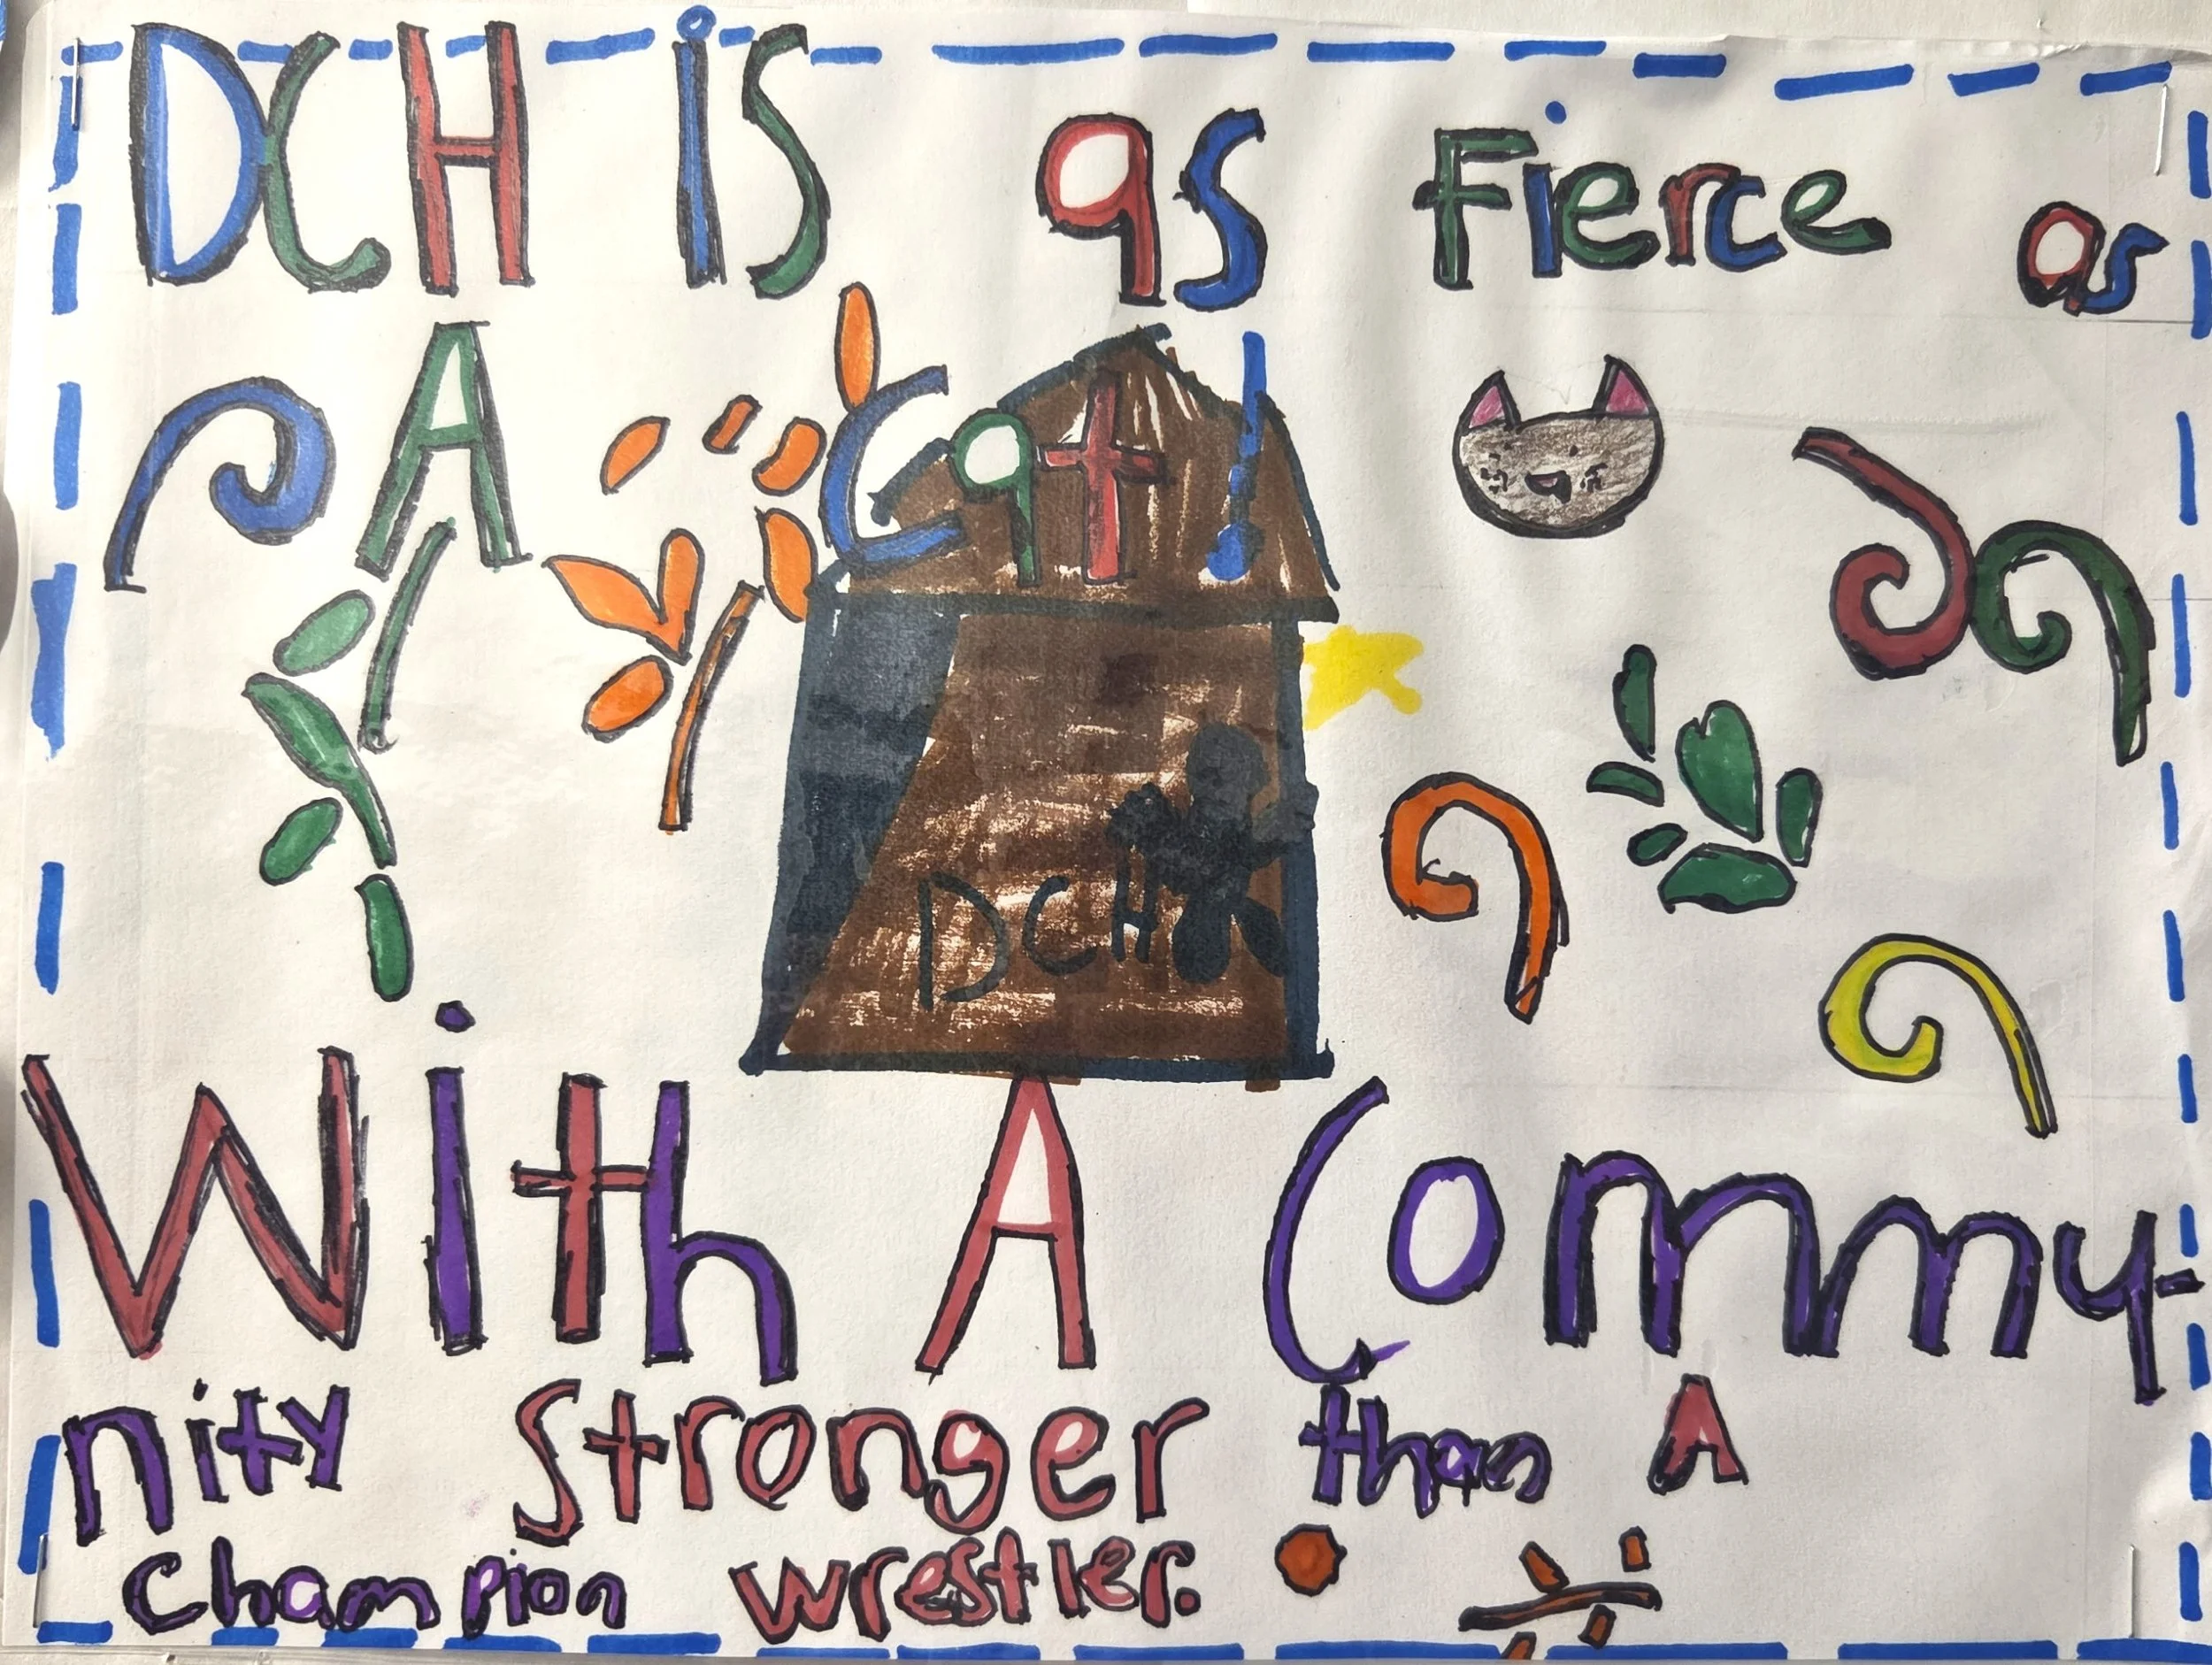 DCH is as Fierce as
A Cat!
DCH
With A Commu-
nity Stronger than A
Champion wrestler.